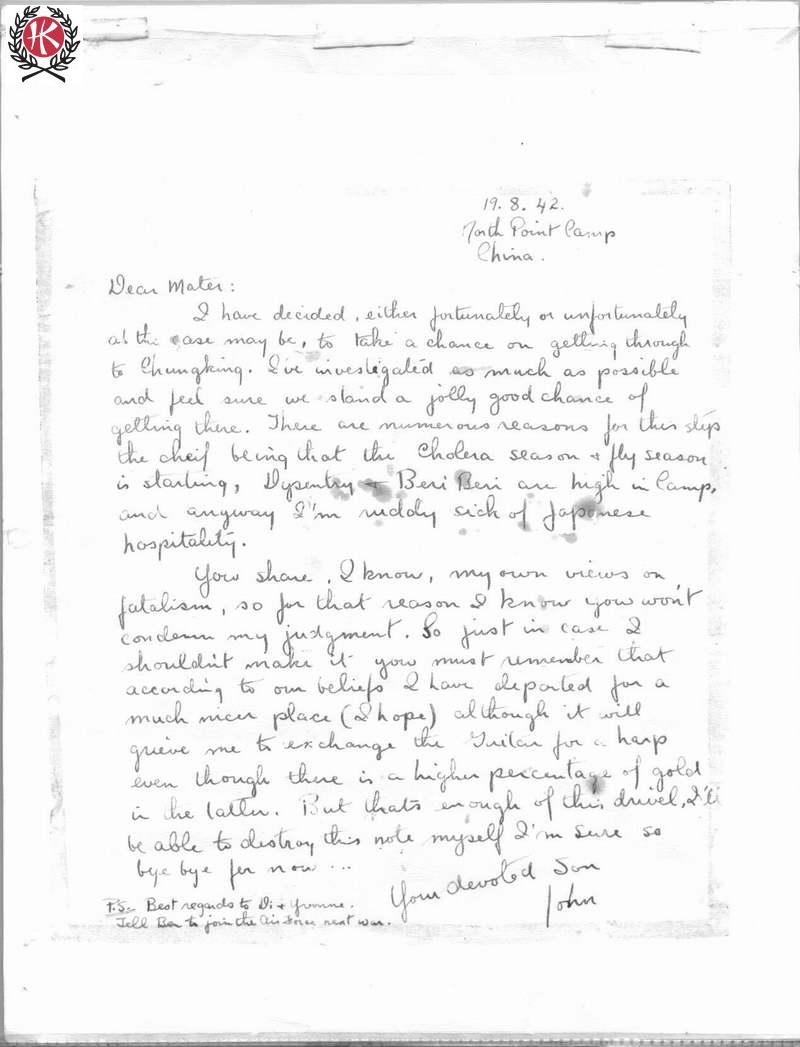 HK
19. 8. 42.
North Point Camp
China.
Dear Mater:
I have decided, either fortunately or unfortunately
as the case may be, to take a chance on getting through
to Chungking. I've investigated as much as possible
and feel sure we stand a jolly good chance of
getting there. There are numerous reasons for this step
the cheif being that the Cholera season + fly season
is starting, Dysentry + Beri Beri are high in Camp,
and anyway I'm ruddy sick of Japanese
hospitality.
You share, I know, my own views on
fatalism, so for that reason I know you won't
condemn my judgment. So just in case I
shouldn't make it you must remember that
according to our beliefs I have departed for a
much nicer place (I hope) although it will
grieve me to exchange the Guitar for a harp
even though there is a higher percentage of gold
in the latter. But thats enough of this drivel, I'll
be able to destroy this note myself I'm sure so
bye bye for now ...
Your devoted Son
John
P.S. Best regards to Di + Yvonne.
Tell Ben to join the Air Force next war.